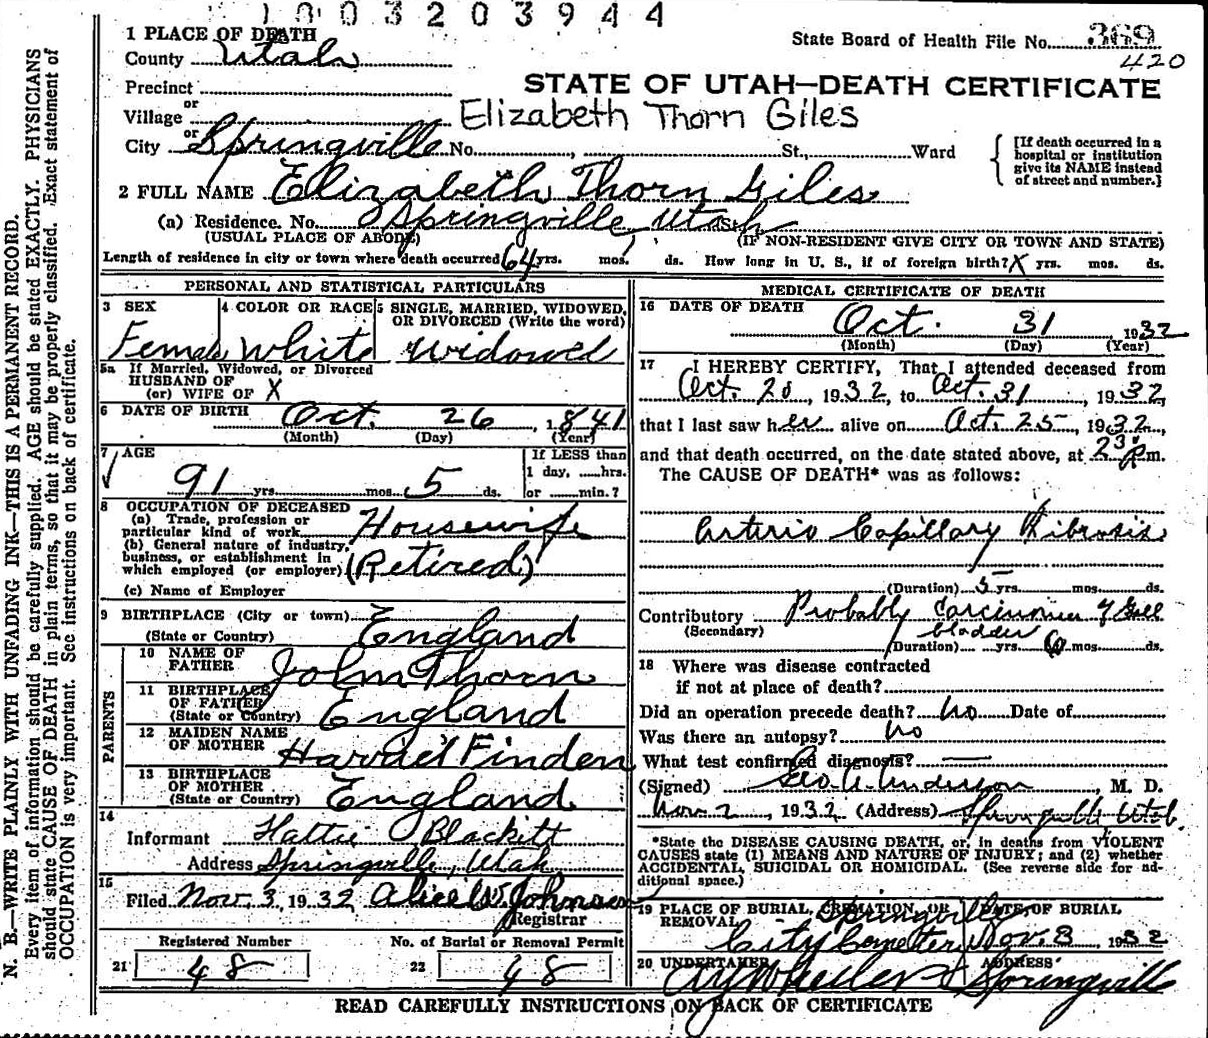 1003203944
1 PLACE OF DEATH
State Board of Health File No. 369
420
County Utah
Precinct
STATE OF UTAH—DEATH CERTIFICATE
or
Village
Elizabeth Thorn Giles
or
City Springville No. , St., Ward
[If death occurred in a
hospital or institution
give its NAME instead
of street and number.]
2 FULL NAME Elizabeth Thorn Giles
(a) Residence. No. Springville, Utah
(USUAL PLACE OF ABODE) (IF NON-RESIDENT GIVE CITY OR TOWN AND STATE)
Length of residence in city or town where death occurred 64 yrs. mos. ds. How long in U. S., if of foreign birth? X yrs. mos. ds.
PERSONAL AND STATISTICAL PARTICULARS
3 SEX
Female
4 COLOR OR RACE
White
5 SINGLE, MARRIED, WIDOWED,
OR DIVORCED (Write the word)
Widowed
5a If Married, Widowed, or Divorced
HUSBAND OF
(or) WIFE OF X
6 DATE OF BIRTH Oct. 26, 1841
(Month) (Day) (Year)
7 AGE
91 yrs. mos. 5 ds.
If LESS than
1 day, hrs.
or min.?
8 OCCUPATION OF DECEASED
(a) Trade, profession or
particular kind of work Housewife
(b) General nature of industry,
business, or establishment in
which employed (or employer) (Retired)
(c) Name of Employer
9 BIRTHPLACE (City or town)
(State or Country) England
PARENTS
10 NAME OF
FATHER John Thorn
11 BIRTHPLACE
OF FATHER
(State or Country) England
12 MAIDEN NAME
OF MOTHER Harriet Finden
13 BIRTHPLACE
OF MOTHER
(State or Country) England
14
Informant Hattie Blackett
Address Springville, Utah
15
Filed Nov. 3, 1932 Alice W. Johnson
Registrar
Registered Number
21 48
No. of Burial or Removal Permit
22 48
MEDICAL CERTIFICATE OF DEATH
16 DATE OF DEATH
Oct. 31 1932
(Month) (Day) (Year)
17 I HEREBY CERTIFY, That I attended deceased from
Oct. 20, 1932, to Oct. 31, 1932,
that I last saw her alive on Oct. 25, 1932,
and that death occurred, on the date stated above, at p m.
The CAUSE OF DEATH* was as follows:
Arterio Capillary Fibrosis
(Duration) 5 yrs. mos. ds.
Contributory Probably Carcinoma of Gall
(Secondary) bladder
(Duration) yrs. 6 mos. ds.
18 Where was disease contracted
if not at place of death?
Did an operation precede death? No Date of
Was there an autopsy? No
What test confirmed diagnosis? —
(Signed) Geo. A. Anderson, M. D.
Nov 2, 1932 (Address) Springville Utah.
*State the DISEASE CAUSING DEATH, or, in deaths from VIOLENT
CAUSES state (1) MEANS AND NATURE OF INJURY; and (2) whether
ACCIDENTAL, SUICIDAL OR HOMICIDAL. (See reverse side for ad-
ditional space.)
19 PLACE OF BURIAL, CREMATION, OR
REMOVAL Springville
City Cemetery
DATE OF BURIAL
Nov. 3 1932
20 UNDERTAKER
A Y Wheeler
ADDRESS
Springville
READ CAREFULLY INSTRUCTIONS ON BACK OF CERTIFICATE
N. B.—WRITE PLAINLY WITH UNFADING INK—THIS IS A PERMANENT RECORD.
Every item of information should be carefully supplied. AGE should be stated EXACTLY. PHYSICIANS
should state CAUSE OF DEATH in plain terms, so that it may be properly classified. Exact statement of
OCCUPATION is very important. See instructions on back of certificate.